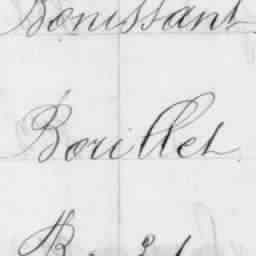 Bonissant
Borillet